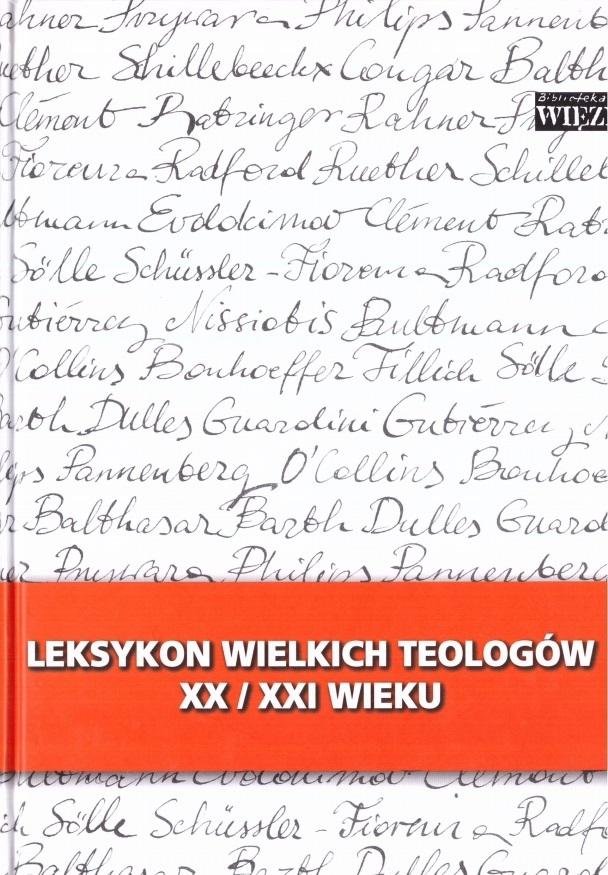 ahner Przywara Philips Pannenb
uether Schillebeeckx Congar Balth
Biblioteka
WIĘŹ
Clément Ratzinger Rahner Prz
Fiorenza Radford Ruether Schilleb
ltmann Evdokimov Clément Ratz
Sölle Schüssler-Fiorenza Radford
Gutiérrez Nissiotis Bultmann
O'Collins Bonhoeffer Tillich Sölle
Barth Dulles Guardini Gutiérrez N
lips Pannenberg O'Collins Bonhoe
r Balthasar Barth Dulles Guard
ner Przywara Philips Pannenberg
LEKSYKON WIELKICH TEOLOGÓW
XX / XXI WIEKU
Bultmann Evdokimov Clément
ch Sölle Schüssler-Fiorenza Radf
Balthasar Barth Dulles Guard